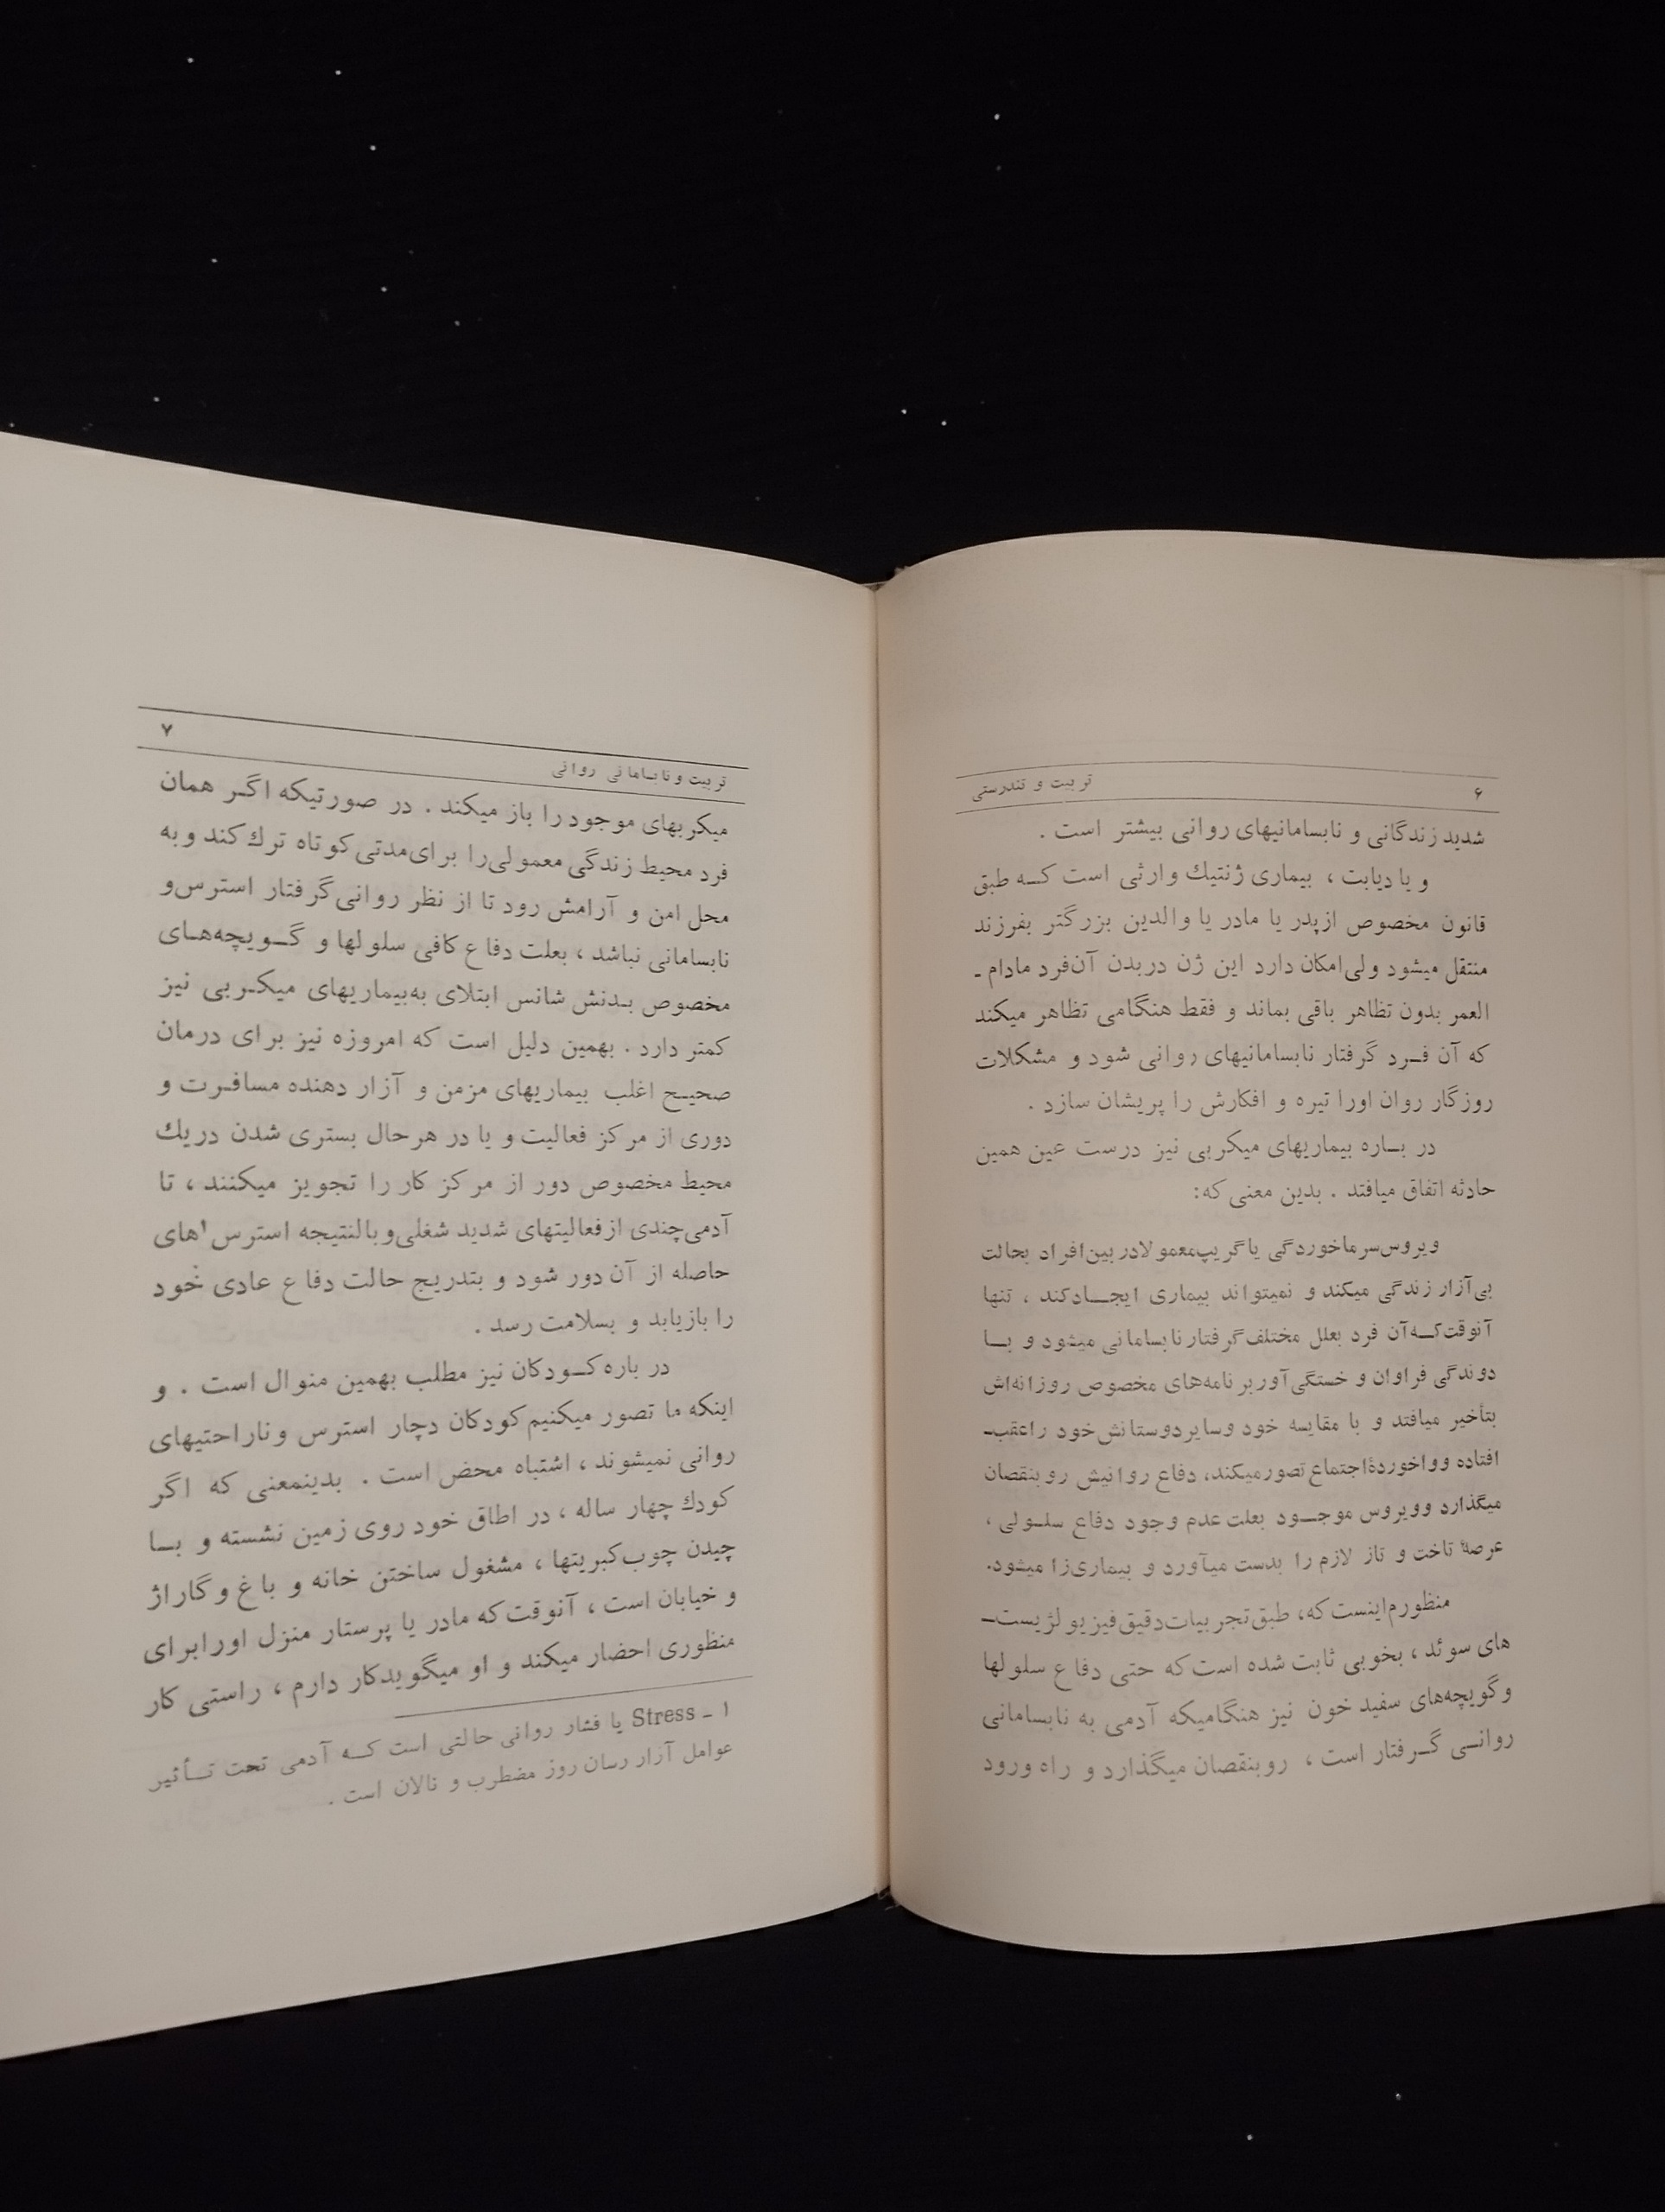 ۶
تربیت و تندرستی
شدید زندگانی و نابسامانیهای روانی بیشتر است .
و یا دیابت ، بیماری ژنتیك وارثی است کـه طبق
قانون مخصوص ازپدر یا مادر یا والدین بزرگتر بفرزند
منتقل میشود ولی‌امکان دارد این ژن دربدن آن‌فرد مادام ـ
العمر بدون تظاهر باقی بماند و فقط هنگامی تظاهر میکند
که آن فـرد گرفتار نابسامانیهای روانی شود و مشکلات
روزگار روان اورا تیره و افکارش را پریشان سازد .
در بـاره بیماریهای میکربی نیز درست عین همین
حادثه اتفاق میافتد . بدین معنی که:
ویروس‌سرماخوردگی یاگریپ‌معمولادربین‌افراد بحالت
بی‌آزار زندگی میکند و نمیتواند بیماری ایجـادکند ، تنها
آنوقت‌کـه‌آن فرد بعلل مختلف‌گرفتارنابسامانی میشود و بـا
دوندگی فراوان و خستگی‌آوربرنامه‌های مخصوص روزانه‌اش
بتأخیر میافتد و با مقایسه خود وسایردوستانش‌خود راعقب‌ـ
افتاده وواخوردهٔ‌اجتماع تصورمیکند، دفاع روانیش روبنقصان
میگذارد وویروس موجـود بعلت عدم وجود دفاع سلـولی ،
عرصهٔ تاخت و تاز لازم را بدست میآورد و بیماری‌زا میشود.
منظورم‌اینست‌که، طبق‌تجربیات‌دقیق‌فیزیولژیست‌ـ
های سوئد ، بخوبی ثابت شده است‌که حتی دفاع سلولها
وگویچه‌های سفید خون نیز هنگامیکه آدمی به نابسامانی
روانـی گـرفتار است ، روبنقصان میگذارد و راه ورود
تربیت و نابسامانی روانی
۷
میکربهای موجود را باز میکند . در صورتیکه اگـر همان
فرد محیط زندگی معمولی‌را برای‌مدتی‌کوتاه ترك کند و به
محل امن و آرامش رود تا از نظر روانی‌گرفتار استرس‌و
نابسامانی نباشد ، بعلت دفاع کافی سلولها و گـویچه‌هـای
مخصوص بـدنش شانس ابتلای به‌بیماریهای میکـربی نیز
کمتر دارد . بهمین دلیل است که امروزه نیز برای درمان
صحیـح اغلب بیماریهای مزمن و آزار دهنده مسافـرت و
دوری از مرکز فعالیت و یا در هرحال بستری شدن دریك
محیط مخصوص دور از مرکز کار را تجویز میکنند ، تا
آدمی‌چندی ازفعالیتهای شدید شغلی‌وبالنتیجه استرس۱های
حاصله از آن دور شود و بتدریج حالت دفاع عادی خود
را بازیابد و بسلامت رسد .
در باره کـودکان نیز مطلب بهمین منوال است . و
اینکه ما تصور میکنیم‌کودکان دچار استرس وناراحتیهای
روانی نمیشوند ، اشتباه محض است . بدینمعنی که اگر
کودك چهار ساله ، در اطاق خود روی زمین نشسته و بـا
چیدن چوب‌کبریتها ، مشغول ساختن خانه و باغ وگاراژ
و خیابان است ، آنوقت‌که مادر یا پرستار منزل اورابرای
منظوری احضار میکند و او میگویدکار دارم ، راستی کار
۱ ـ Stress یا فشار روانی حالتی است کـه آدمی تحت تـأثیر
عوامل آزار رسان روز مضطرب و نالان است .